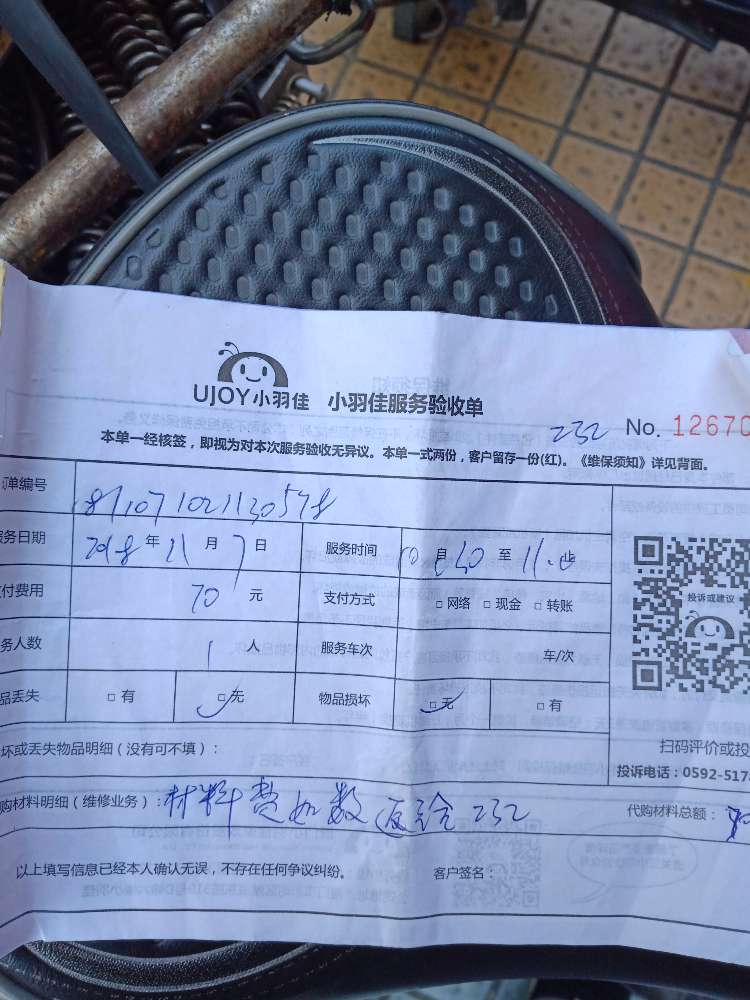 UJOY小羽佳 小羽佳服务验收单
232 No. 12670
本单一经核签，即视为对本次服务验收无异议。本单一式两份，客户留存一份(红)。《维保须知》详见背面。
单编号
务日期 2018 年 11 月 7 日 服务时间 10:30 至
付费用 70 元 支付方式 □ 网络 □ 现金 □ 转账
务人数 1 人 服务车次 车/次
品丢失 □ 有 □ 无 物品损坏 □ 无 □ 有
坏或丢失物品明细（没有可不填）：
购材料明细（维修业务）：材料费如数返给232 代购材料总额：
以上填写信息已经本人确认无误，不存在任何争议纠纷。 客户签名：
投诉或建议
扫码评价或投
投诉电话：0592-517